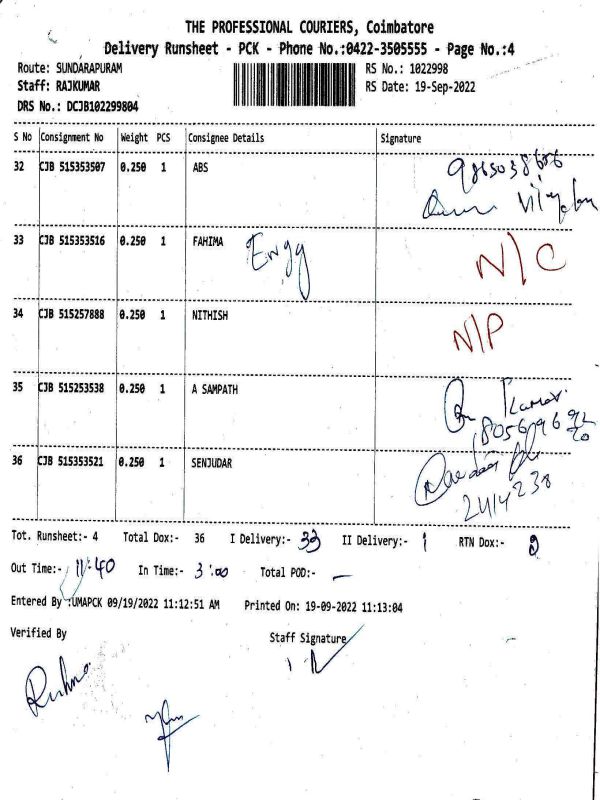 THE PROFESSIONAL COURIERS, Coimbatore
Delivery Runsheet - PCK - Phone No.:0422-3505555 - Page No.:4
Route: SUNDARAPURAM RS No.: 1022998
Staff: RAJKUMAR RS Date: 19-Sep-2022
DRS No.: DCJB102299804
S No Consignment No Weight PCS Consignee Details Signature
32 CJB 515353507 0.250 1 ABS
33 CJB 515353516 0.250 1 FAHIMA Engg N/C
34 CJB 515257888 0.250 1 NITHISH N/P
35 CJB 515253538 0.250 1 A SAMPATH Kumar.
36 CJB 515353521 0.250 1 SENJUDAR
2414238
Tot. Runsheet:- 4 Total Dox:- 36 I Delivery:- 33 II Delivery:- 1 RTN Dox:- 2
Out Time:- 11:40 In Time:- 3:00 Total POD:- —
Entered By :UMAPCK 09/19/2022 11:12:51 AM Printed On: 19-09-2022 11:13:04
Verified By Staff Signature